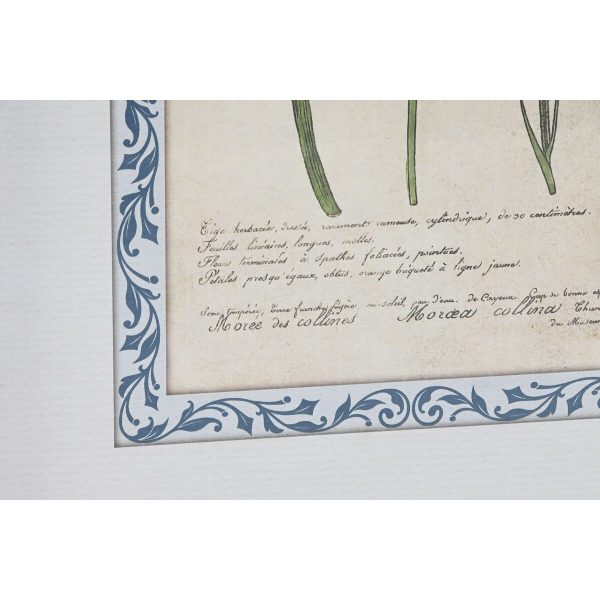 Tige herbacée, dressée, rarement rameuse, cylindrique, de 30 centimètres.
Feuilles linéaires, longues, molles.
Fleurs terminales à spathes foliacés, pointues.
Pétales presqu'égaux, obtus, orange à ligne jaune.
tempérée, Terre franche légère, soleil, peu d'eau. de Cayeux.
Moræa collina
Morée des collines
du Museum